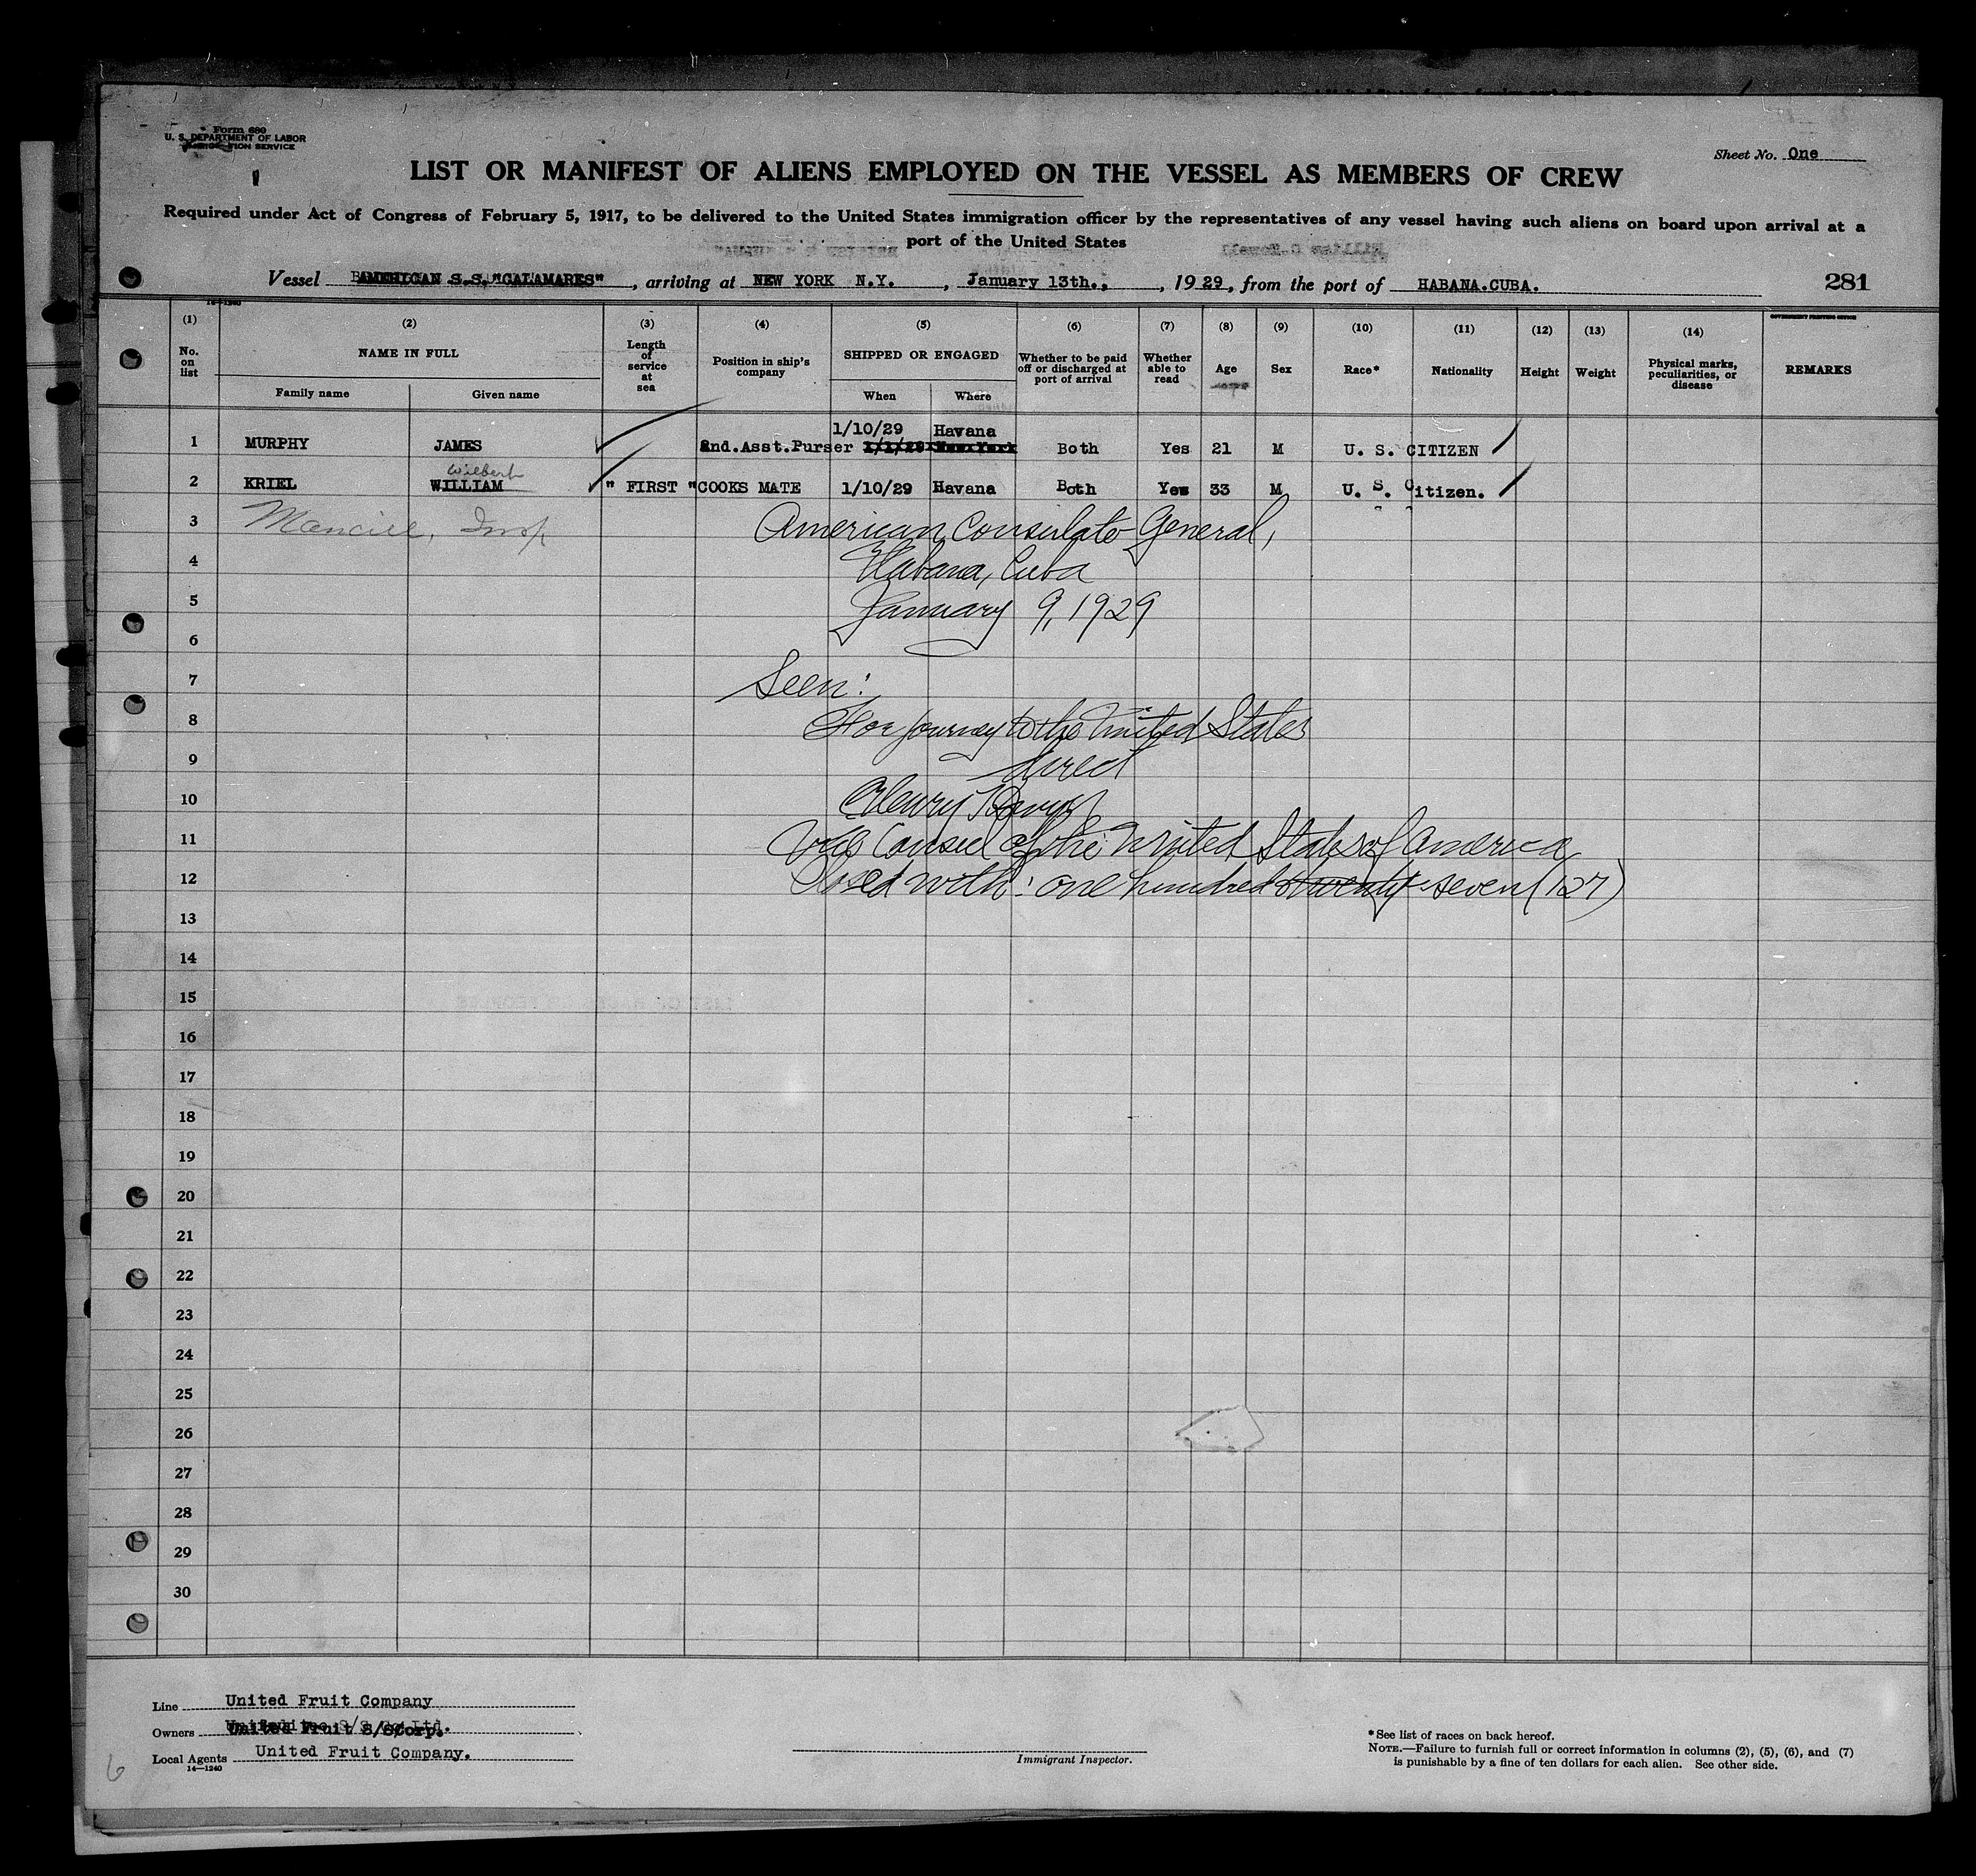 Form 680
U. S. DEPARTMENT OF LABOR
IMMIGRATION SERVICE
Sheet No. One
LIST OR MANIFEST OF ALIENS EMPLOYED ON THE VESSEL AS MEMBERS OF CREW
Required under Act of Congress of February 5, 1917, to be delivered to the United States immigration officer by the representatives of any vessel having such aliens on board upon arrival at a
port of the United States
Vessel AMERICAN S.S. "CALAMARES", arriving at NEW YORK N.Y., January 13th., 1929, from the port of HABANA.CUBA. 281
14-1240
GOVERNMENT PRINTING OFFICE
(1) (2) (3) (4) (5) (6) (7) (8) (9) (10) (11) (12) (13) (14)
No. on list NAME IN FULL Length of service at sea Position in ship's company SHIPPED OR ENGAGED Whether to be paid off or discharged at port of arrival Whether able to read Age Sex Race* Nationality Height Weight Physical marks, peculiarities, or disease REMARKS
Family name Given name When Where
1/10/29 Havana
1 MURPHY JAMES 2nd.Asst.Purser 1/1/29 New York Both Yes 21 M U. S. CITIZEN
Wilbert
2 KRIEL WILLIAM " FIRST " COOKS MATE 1/10/29 Havana Both Yes 33 M U. S. Citizen.
3 Insp. American Consulate General,
4 Habana, Cuba
5 January 9, 1929
6
7 Seen:
8 For journey to the United States
9 direct
10 Henry
11 Vice Consul of the United States of America
12 Closed with: one hundred twenty-seven (127)
13
14
15
16
17
18
19
20
21
22
23
24
25
26
27
28
29
30
Line United Fruit Company
Owners United Fruit S/S Corp.
Local Agents United Fruit Company.
14-1240
Immigrant Inspector.
* See list of races on back hereof.
NOTE.—Failure to furnish full or correct information in columns (2), (5), (6), and (7)
is punishable by a fine of ten dollars for each alien. See other side.
6